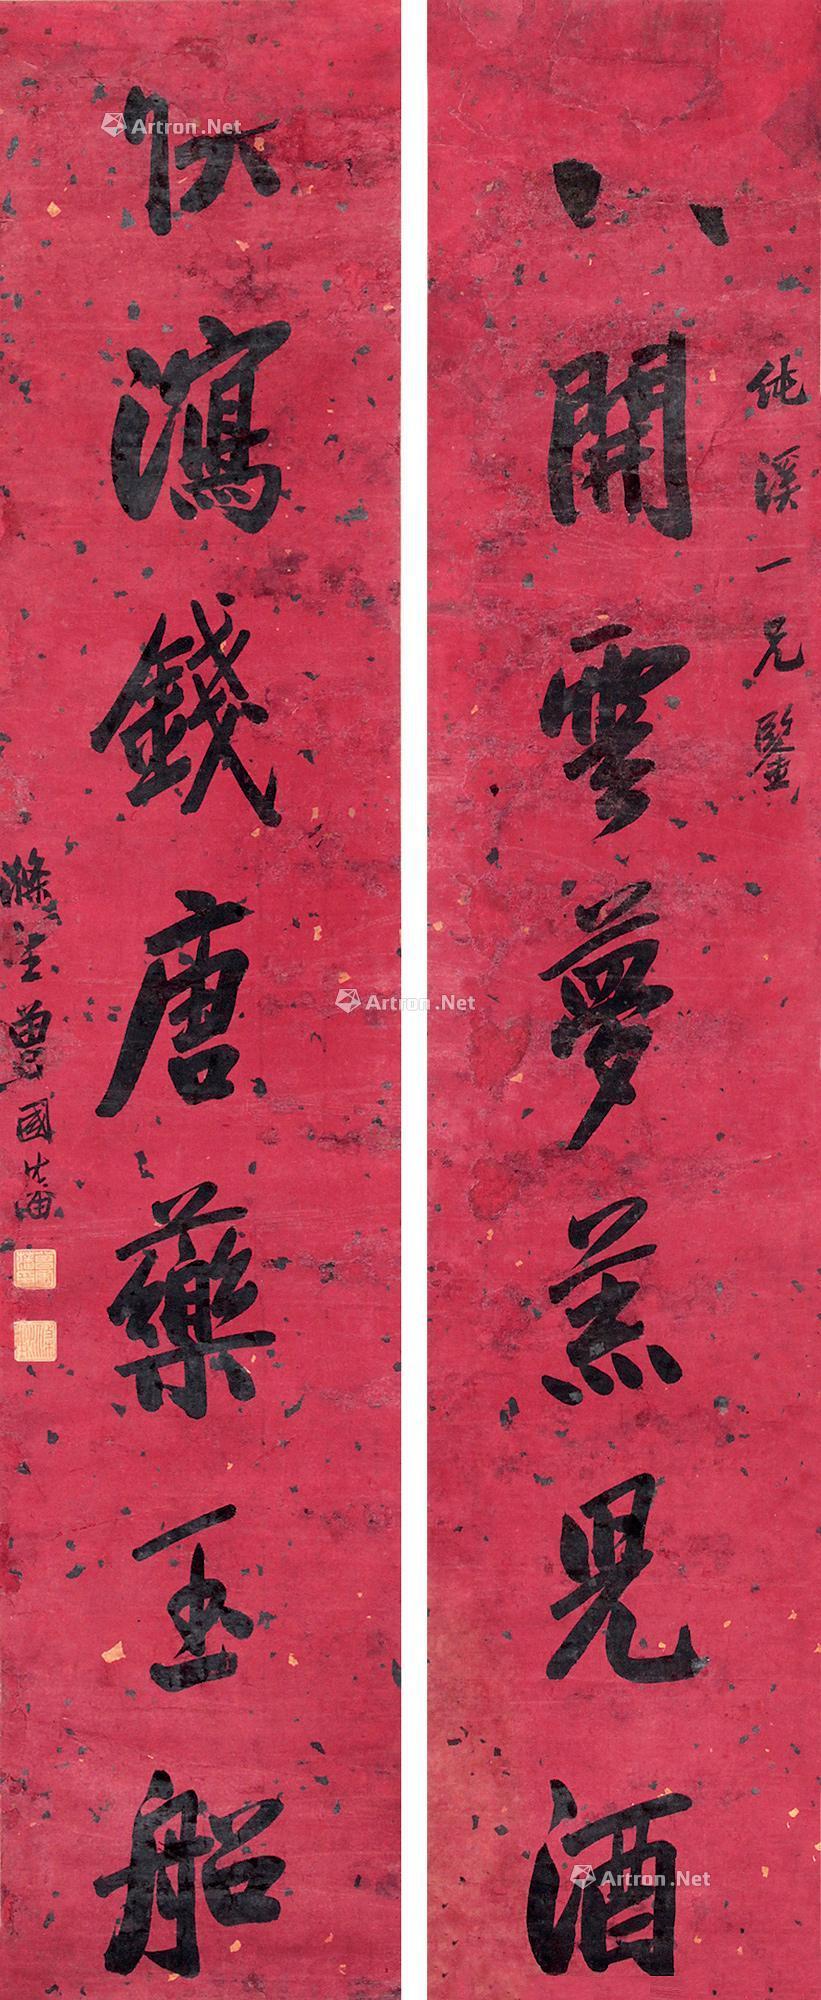 純溪一兄鑒
開雲夢羔兒酒
快瀉錢唐藥玉船
滌生曾國藩
Artron.Net
Artron.Net
Artron.Net